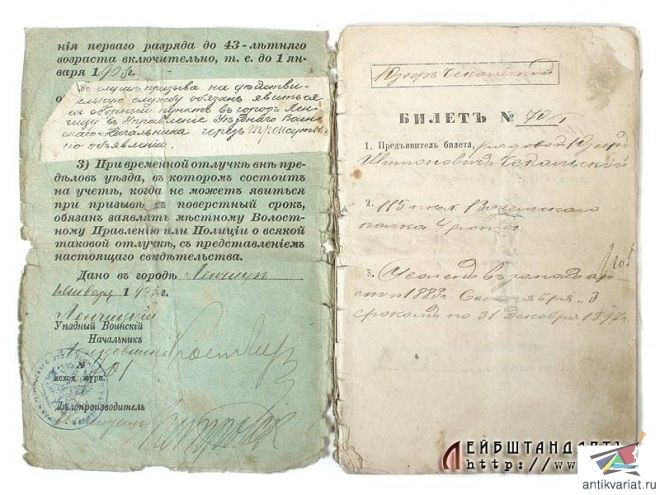 нія перваго разряда до 43-лѣтняго
возраста включительно, т. е. до 1 ян-
варя 19
въ случаѣ призыва на дѣйстви-
тельную службу обязанъ явиться
на сборный пунктъ въ городъ Лен-
чицу въ Управленіе Уѣзднаго Воин-
скаго Начальника черезъ трое сутокъ
по объявленіи.
3) При временной отлучкѣ внѣ пре-
дѣловъ уѣзда, въ которомъ состоитъ
на учетѣ, когда не можетъ явиться
при призывѣ въ поверстный срокъ,
обязанъ заявить мѣстному Волост-
ному Правленію или Полиціи о всякой
таковой отлучкѣ, съ представленіемъ
настоящаго свидѣтельства.
Дано въ городѣ Ленчицѣ
января 19 г.
Ленчицкій
Уѣздный Воинскій
Начальникъ
№
исход. журн.
Дѣлопроизводитель
БИЛЕТЪ №
1. Предъявитель билета, рядовой
2. 115 пѣх. Вяземскаго
полка 4 роты
3. Уволенъ въ запасъ ар
1882 г. Сентября
срокомъ по 31 декабря 1897 г.
ЛЕЙБШТАНДАРТЪ
http://www.
antikvariat.ru